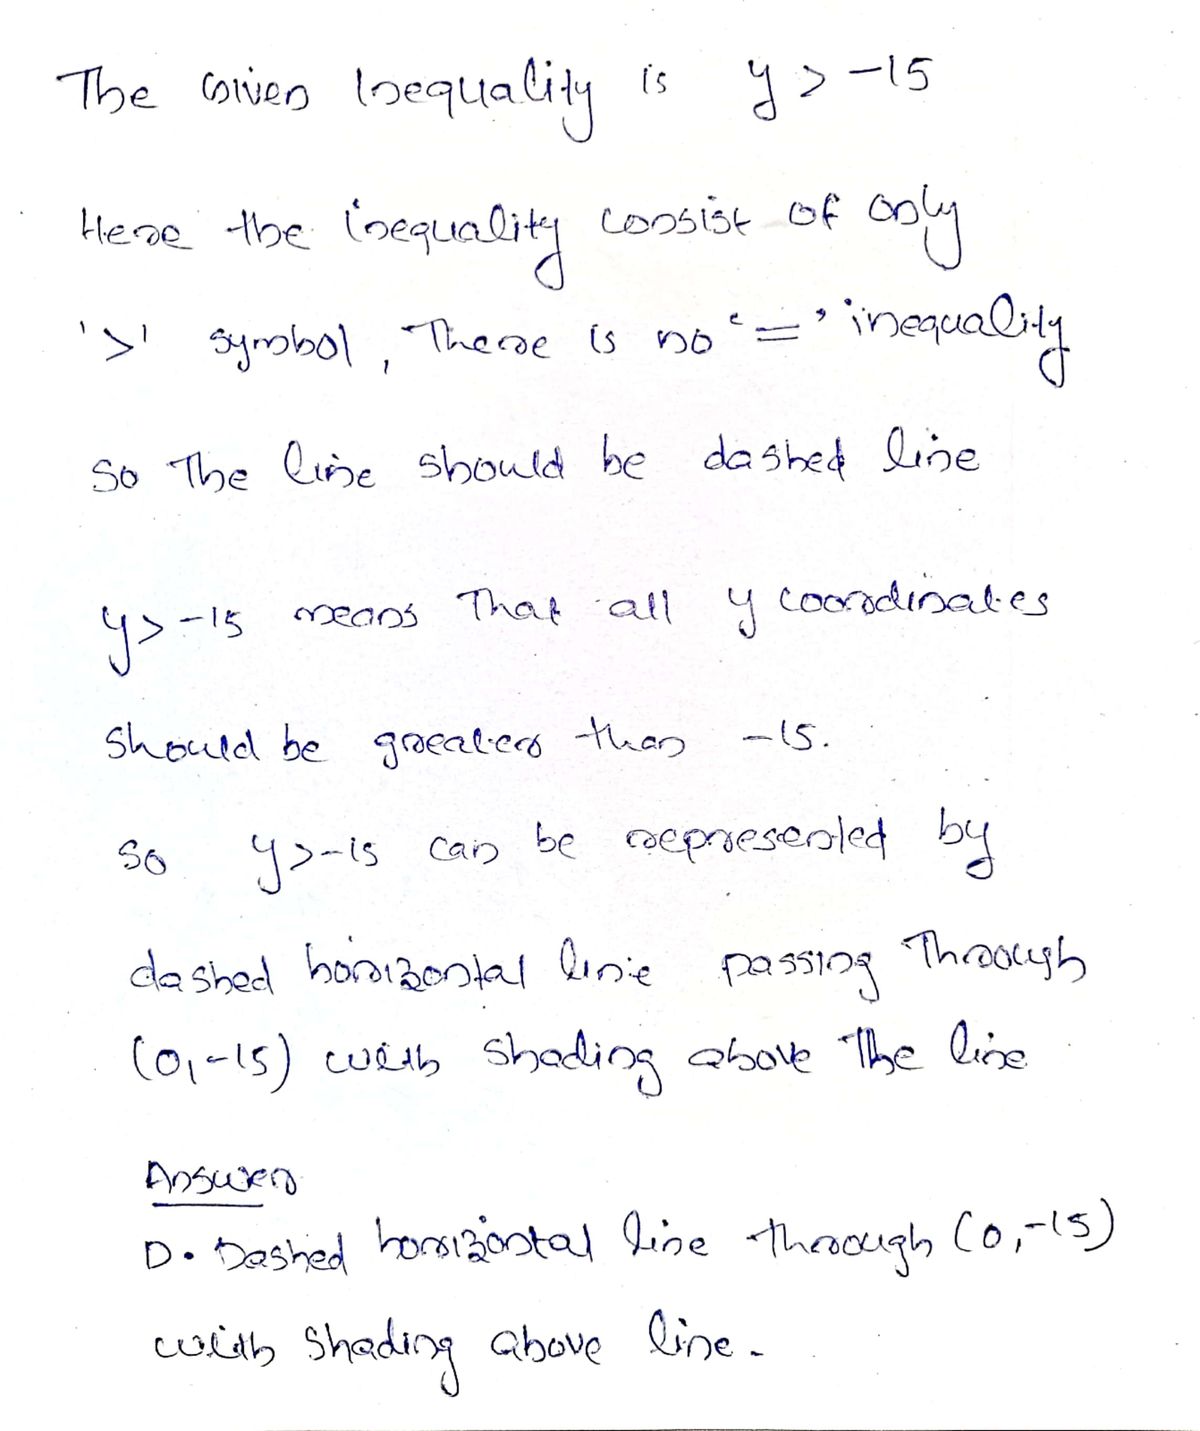 The Given Inequality is y > -15
Here the inequality consist of only
'>' symbol, There is no '=' inequality
So The line should be dashed line
y>-15 means That all y coordinates
should be greater than -15.
so y>-15 can be represented by
dashed horizontal line passing Through
(0,-15) with shading above The line
Answer
D. Dashed horizontal line through (0,-15)
with shading above line.